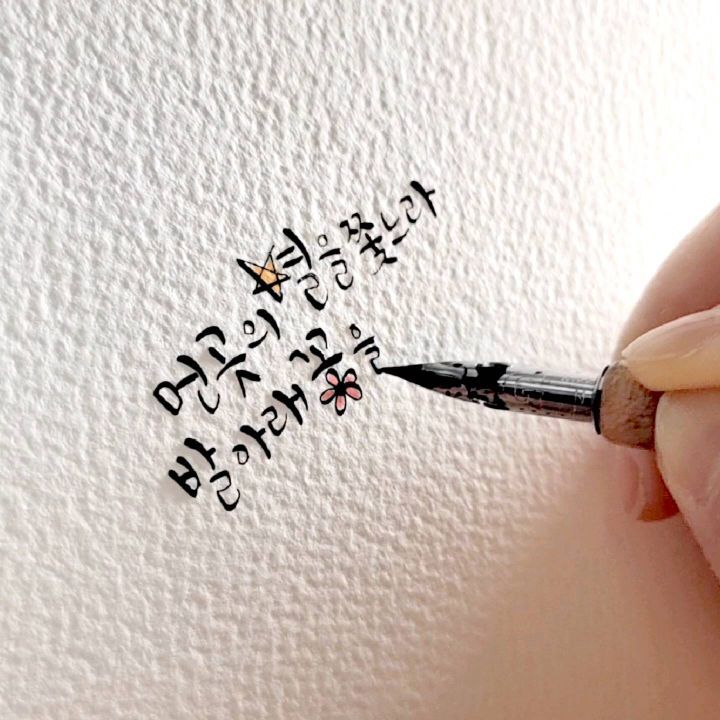 먼곳의 별을 쫓느라
발아래 꽃을